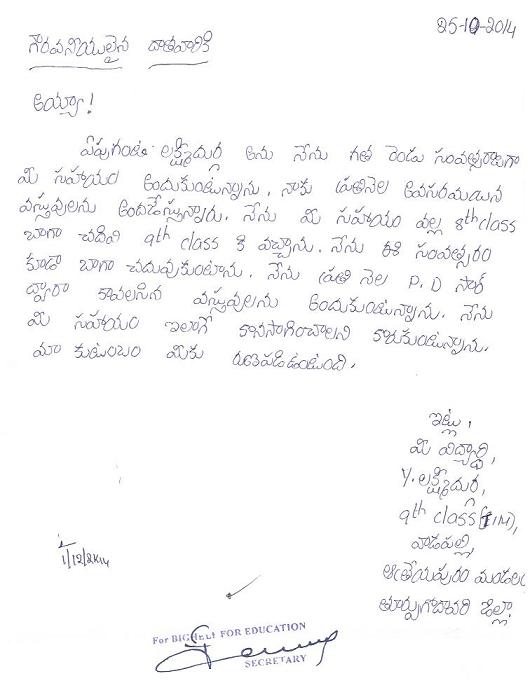 25-10-2014
గౌరవనీయులైన దాతవారికి
అయ్యా!
లక్ష్మీదుర్గ అను నేను గత రెండు సంవత్సరాలుగా
మీ సహాయం అందుకుంటున్నాను. నాకు ప్రతినెల అవసరమయిన
వస్తువులను అందజేస్తున్నారు. నేను మీ సహాయం వల్ల 8th class
బాగా చదివి 9th class కి వచ్చాను. నేను ఈ సంవత్సరం
కూడా బాగా చదువుకుంటాను. నేను ప్రతి నెల P.D సార్
ద్వారా కావలసిన వస్తువులను అందుకుంటున్నాను. నేను
మీ సహాయం ఇలాగే కొనసాగించాలని కోరుకుంటున్నాను.
మా కుటుంబం మీకు రుణపడిఉంటుంది.
ఇట్లు,
మీ విద్యార్థి,
Y. లక్ష్మీదుర్గ,
9th class (TIM),
వాడపల్లి,
ఆత్రేయపురం మండలం
తూర్పుగోదావరి జిల్లా.
1/12/2K14
For BIGHELP FOR EDUCATION
SECRETARY